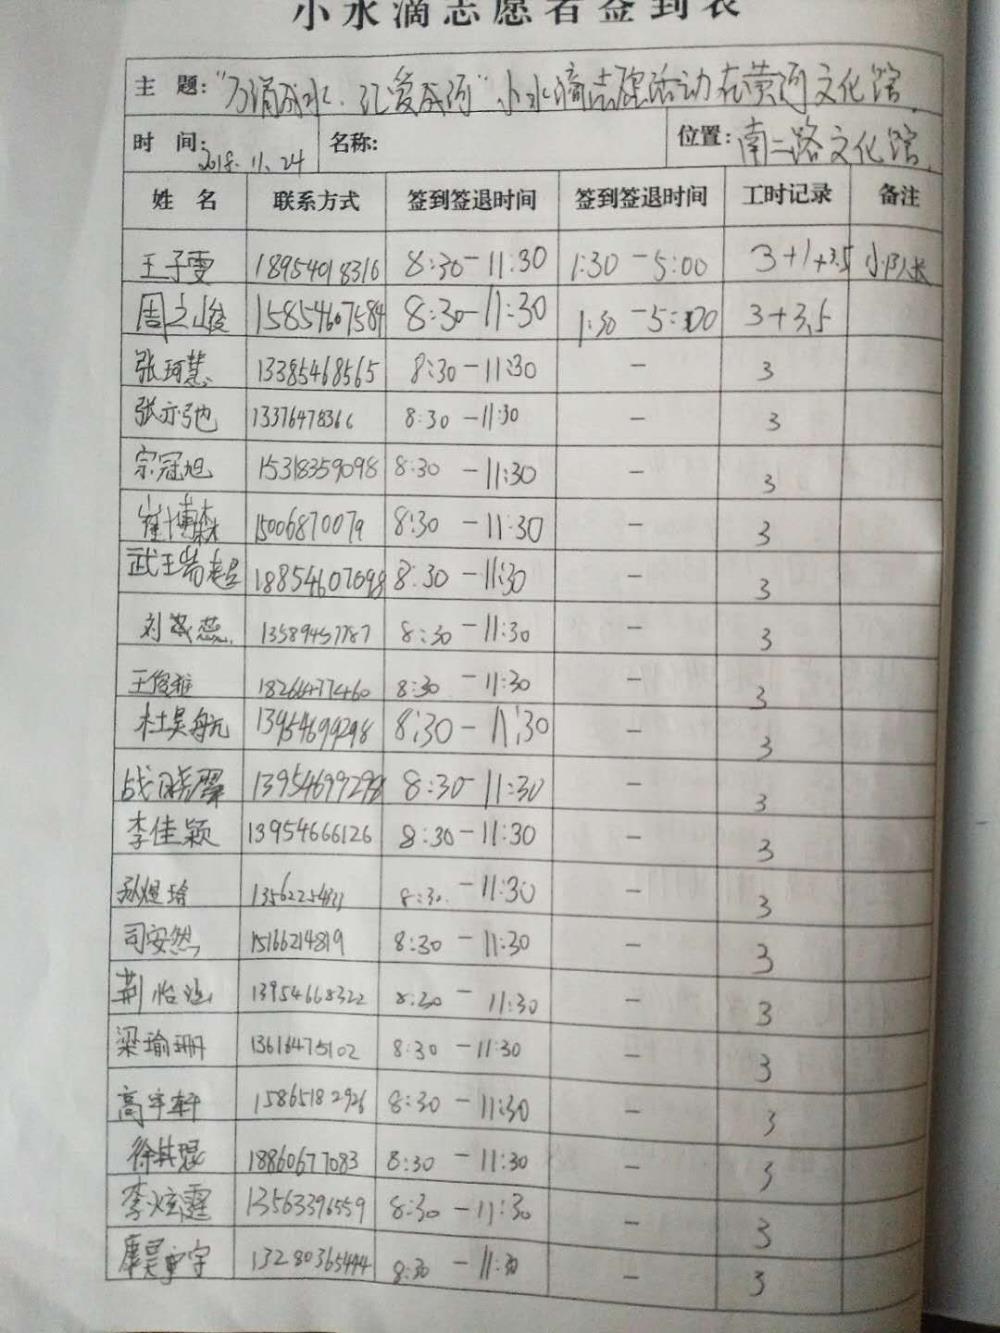 小水滴志愿者签到表
主 题: "万滴成水、汇爱成河"小水滴志愿活动在黄河文化馆.
时 间: 2018.11.24 名称: 位置: 南二路文化馆.
姓 名 联系方式 签到签退时间 签到签退时间 工时记录 备注
王子雯 18954018316 8:30-11:30 1:30-5:00 3+1+3.5 小队长
周之峻 15854607584 8:30-11:30 1:30-5:00 3+3.5
张珂慧 13385468565 8:30-11:30 - 3
张亦弛 13376478366 8:30-11:30 - 3
宗冠旭 15318359098 8:30-11:30 - 3
崔博森 15006870079 8:30-11:30 - 3
武王 18854607698 8:30-11:30 - 3
刘 蕊 13589457787 8:30-11:30 - 3
王俊 18266477460 8:30-11:30 - 3
杜昊航 13954699298 8:30-11:30 - 3
战晓 13954699298 8:30-11:30 - 3
李佳颖 13954666126 8:30-11:30 - 3
孙煜培 8:30-11:30 - 3
司安然 15166214819 8:30-11:30 - 3
荆怡 13954668322 8:30-11:30 - 3
梁瑜珊 13616475102 8:30-11:30 - 3
高宇轩 15865182926 8:30-11:30 - 3
徐其琨 18860677083 8:30-11:30 - 3
李炫霆 13563396559 8:30-11:30 - 3
宇 13280365444 8:30-11:30 - 3